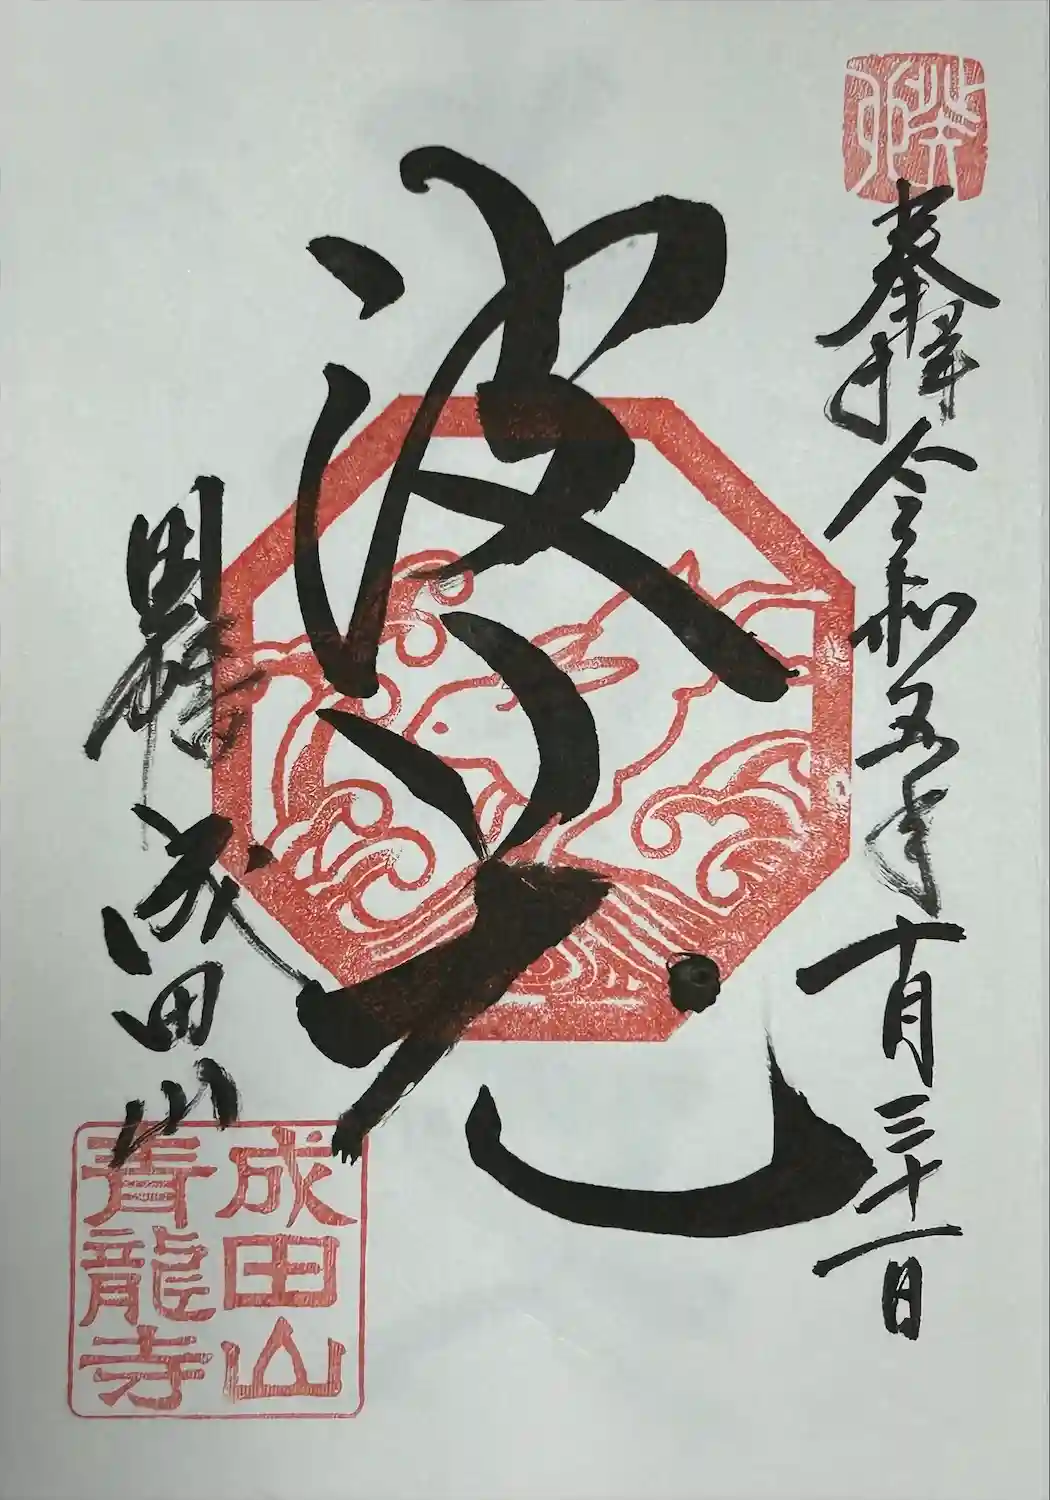 癸卯
奉拝 令和五年十月三十一日
波兎
成田山
成田山
青龍寺